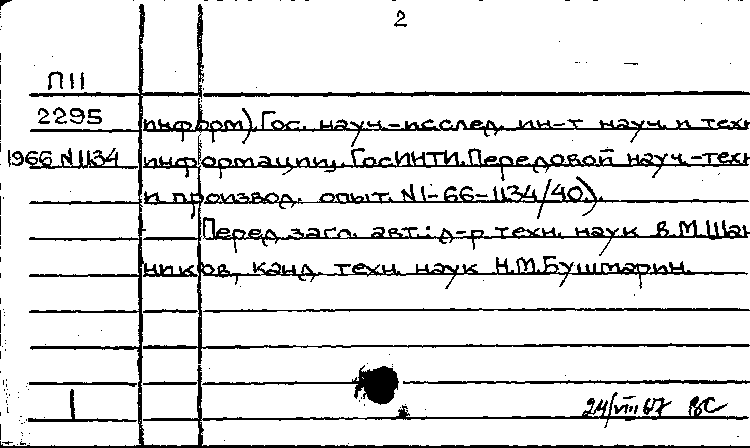 2
П11
2295 информ). Гос. науч.-исслед. ин-т науч. и техн
1966 N1134 информации. ГосИНТИ. Передовой науч.-техн
и производ. опыт. N1-66-1134/40).
Перед загл. авт.: д-р техн. наук В.М.Шан
ников, канд. техн. наук Н.М.Бушмарин.
1
24/VIII 67 ВС